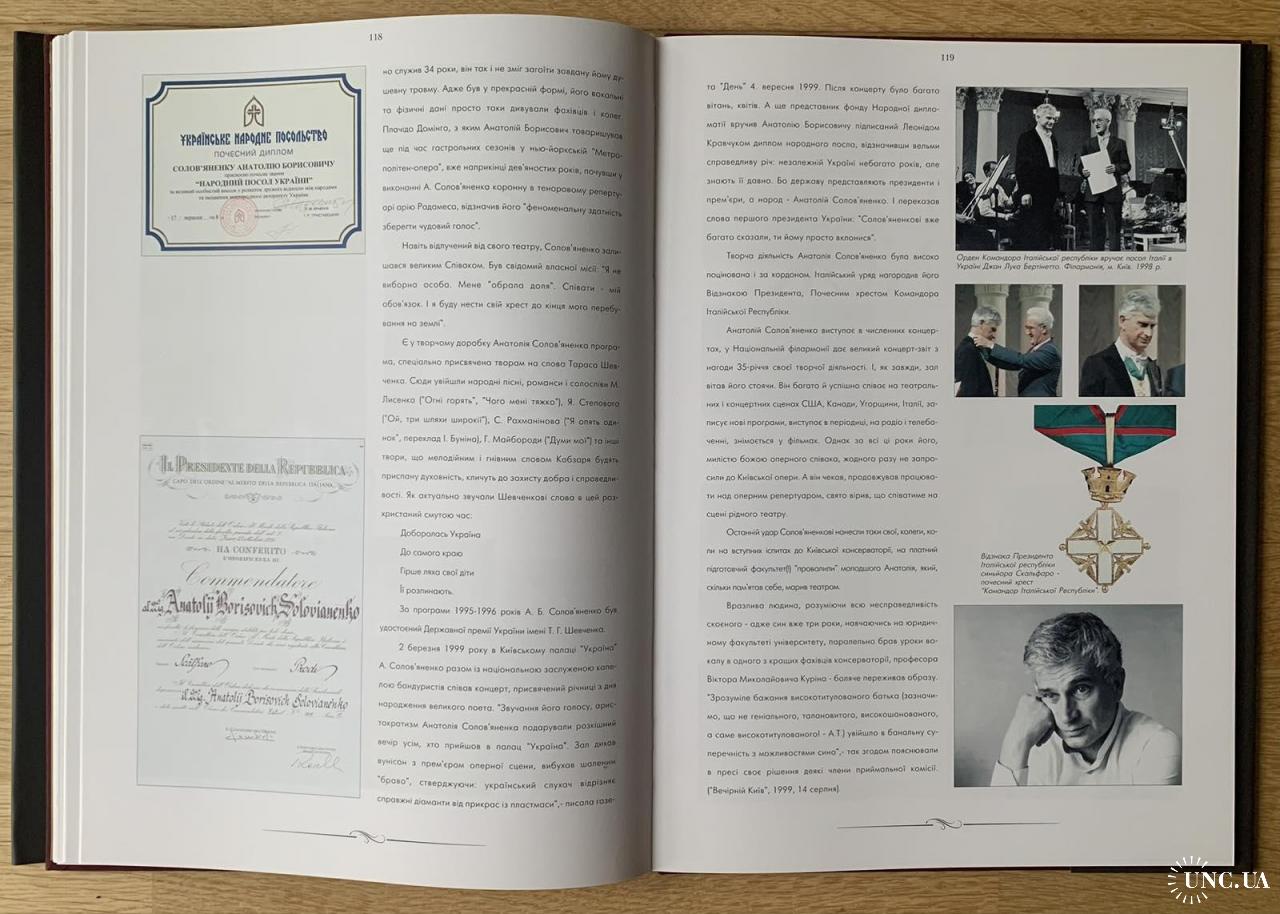 118
УКРАЇНСЬКЕ НАРОДНЕ ПОСОЛЬСТВО
ПОЧЕСНИЙ ДИПЛОМ
СОЛОВ'ЯНЕНКУ АНАТОЛІЮ БОРИСОВИЧУ
"НАРОДНИЙ ПОСОЛ УКРАЇНИ"
IL PRESIDENTE DELLA REPUBBLICA
CAPO DELL'ORDINE "AL MERITO DELLA REPUBBLICA ITALIANA"
HA CONFERITO
Commendatore
al Sig. Anatolij Borisovich Solovianenko
Scalfaro Prodi
al Sig. Anatolij Borisovich Solovianenko
но служив 34 роки, він так і не зміг загоїти завдану йому ду-
шевну травму. Адже був у прекрасній формі, його вокальні
та фізичні дані просто таки дивували фахівців і колег.
Плачідо Домінго, з яким Анатолій Борисович товаришував
ще під час гастрольних сезонів у нью-йоркській "Метро-
политен-опера", вже наприкінці дев'яностих років, почувши у
виконанні А. Солов'яненка коронну в теноровому реперту-
арі арію Радамеса, відзначив його "феноменальну здатність
зберегти чудовий голос".
Навіть відлучений від свого театру, Солов'яненко зали-
шався великим Співаком. Був свідомий власної місії: "Я не
виборна особа. Мене "обрала доля". Співати - мій
обов'язок. І я буду нести свій хрест до кінця мого перебу-
вання на землі".
Є у творчому доробку Анатолія Солов'яненка програ-
ма, спеціально присвячена творам на слова Тараса Шев-
ченка. Сюди увійшли народні пісні, романси і солоспіви М.
Лисенка ("Огні горять", "Чого мені тяжко"), Я. Степового
("Ой, три шляхи широкії"), С. Рахманінова ("Я опять оди-
нок", переклад І. Буніна), Г. Майбороди ("Думи мої") та інші
твори, що мелодійним і гнівним словом Кобзаря будять
приспану духовність, кличуть до захисту добра і справедли-
вості. Як актуально звучали Шевченкові слова в цей роз-
христаний смутою час:
Доборолась Україна
До самого краю
Гірше ляха свої діти
Її розпинають.
За програми 1995-1996 років А. Б. Солов'яненко був
удостоєний Державної премії України імені Т. Г. Шевченка.
2 березня 1999 року в Київському палаці "Україна"
А. Солов'яненко разом із національною заслуженою капе-
лою бандуристів співав концерт, присвячений річниці з дня
народження великого поета. "Звучання його голосу, арис-
тократизм Анатолія Солов'яненка подарували розкішний
вечір усім, хто прийшов в палац "Україна". Зал дихав
вунісон з прем'єром оперної сцени, вибухав шаленим
"браво", стверджуючи: український слухач відрізняє
справжні діаманти від прикрас із пластмаси",- писала газе-
119
та "День" 4. вересня 1999. Після концерту було багато
вітань, квітів. А ще представник фонду Народної дипло-
матії вручив Анатолію Борисовичу підписаний Леонідом
Кравчуком диплом народного посла, відзначивши вельми
справедливу річ: незалежній Україні небагато років, але
знають її давно. Бо державу представляють президенти і
прем'єри, а народ - Анатолій Солов'яненко. І переказав
слова першого президента України: "Солов'яненкові вже
багато сказали, ти йому просто вклонися".
Творча діяльність Анатолія Солов'яненка була високо
поцінована і за кордоном. Італійський уряд нагородив його
Відзнакою Президента, Почесним хрестом Командора
Італійської Республіки.
Анатолій Солов'яненко виступає в численних концер-
тах, у Національній філармонії дає великий концерт-звіт з
нагоди 35-річчя своєї творчої діяльності. І, як завжди, зал
вітав його стоячи. Він багато й успішно співає на театраль-
них і концертних сценах США, Канади, Угорщини, Італії, за-
писує нові програми, виступає в періодиці, на радіо і телеба-
ченні, знімоється у фільмах. Однак за всі ці роки його,
милістю божою оперного співака, жодного разу не запро-
сили до Київської опери. А він чекав, продовжував працюва-
ти над оперним репертуаром, свято вірив, що співатиме на
сцені рідного театру.
Останній удар Солов'яненкові нанесли таки свої, колеги, ко-
ли на вступних іспитах до Київської консерваторії, на платний
підготовчий факультет(!) "провалили" молодшого Анатолія, який,
скільки пам'ятав себе, марив театром.
Вразлива людина, розуміючи всю несправедливість
скоєного - адже син вже три роки, навчаючись на юридич-
ному факультеті університету, паралельно брав уроки во-
калу в одного з кращих фахівців консерваторії, професора
Віктора Миколайовича Куріна - боляче переживав образу.
"Зрозуміле бажання високотитулованого батька (зазначи-
мо, що не геніального, талановитого, високошанованого,
а саме високотитулованого! - А.Т.) увійшло в банальну су-
перечність з можливостями сина",- так згодом пояснювали
в пресі своє рішення деякі члени приймальної комісії.
("Вечірній Київ", 1999, 14 серпня).
Орден Командора Італійської республіки вручає посол Італії в
Україні Джан Лука Бертінетто. Філармонія, м. Київ. 1998 р.
Відзнака Президента
Італійської республіки
синьйора Скальфаро -
почесний хрест
"Командор Італійської Республіки".
UNC.UA